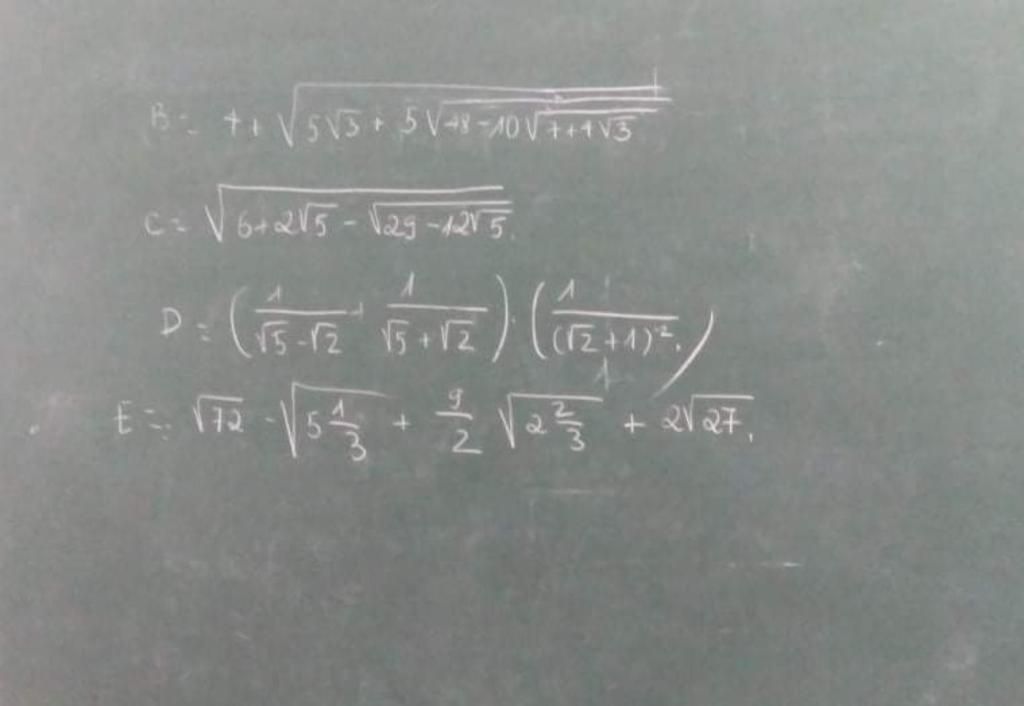 B = 4 + √(5√3 + 5√(48 - 10√(7+4√3)))
C = √(6+2√5 - √(29-12√5)).
D = (1/(√5-√2) + 1/(√5+√2)) · (1/(√2+1)^2 · 1)
E = √72 - √(5 1/3) + 9/2 √(2 2/3) + 2√27.